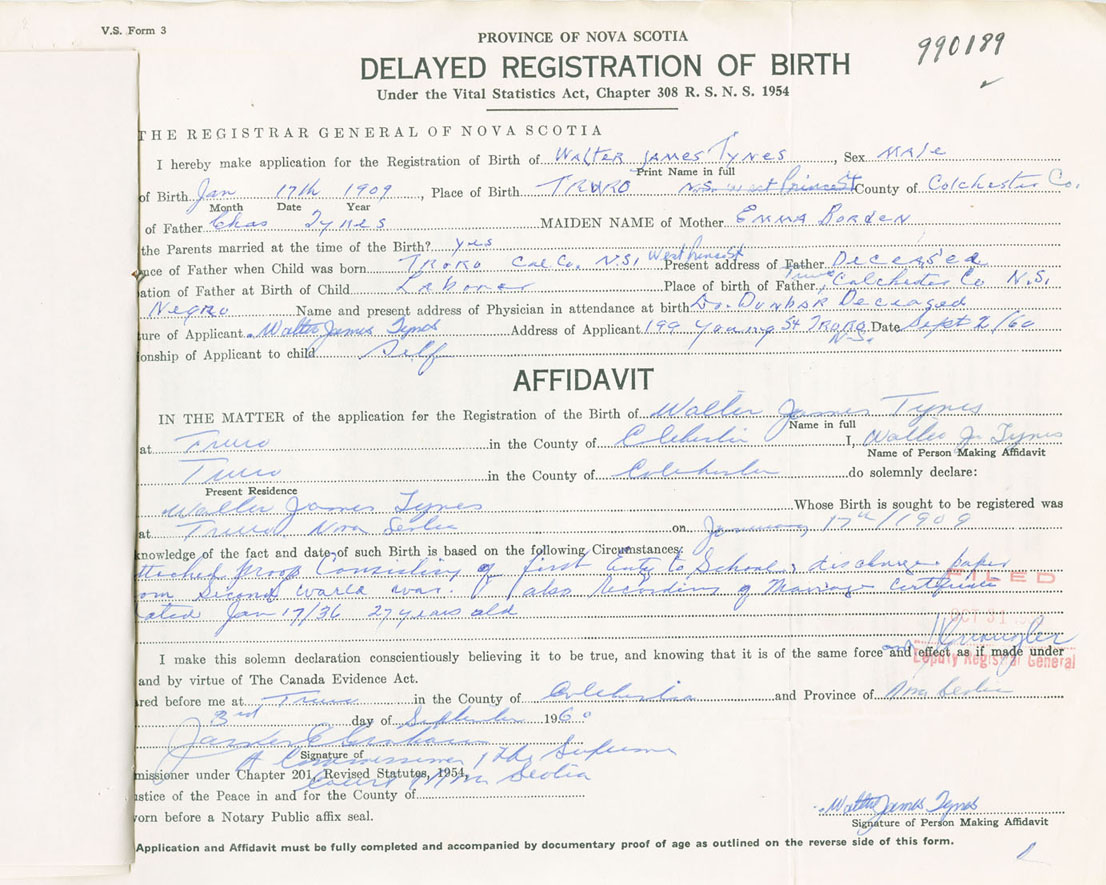 V.S. Form 3
PROVINCE OF NOVA SCOTIA
990189
DELAYED REGISTRATION OF BIRTH
Under the Vital Statistics Act, Chapter 308 R. S. N. S. 1954
THE REGISTRAR GENERAL OF NOVA SCOTIA
I hereby make application for the Registration of Birth of WALTER JAMES TYNES, Sex MALE
Print Name in full
of Birth Jan 17th 1909, Place of Birth TRURO N.S. West Prince St County of Colchester Co.
Month Date Year
of Father Chas Tynes MAIDEN NAME of Mother EMMA BORDEN
the Parents married at the time of the Birth? yes
nce of Father when Child was born TRURO Col Co. N.S. West Prince St Present address of Father Deceased
ation of Father at Birth of Child Laborer Place of birth of Father Truro Colchester Co N.S.
Negro Name and present address of Physician in attendance at birth Dr. DUNBAR Deceased
ure of Applicant Walter James Tynes Address of Applicant 199 Young St TRURO N.S. Date Sept 2/60
onship of Applicant to child Self
AFFIDAVIT
IN THE MATTER of the application for the Registration of the Birth of Walter James Tynes
Name in full
at Truro in the County of Colchester I, Walter J. Tynes
Name of Person Making Affidavit
Truro in the County of Colchester do solemnly declare:
Present Residence
Walter James Tynes Whose Birth is sought to be registered was
at Truro Nova Scotia on January 17th/1909
knowledge of the fact and date of such Birth is based on the following Circumstances:
ttached proof Consisting of first Entry to School, discharge paper
om Second world war. & also Recording of Marriage Certificate
ated Jan 17/36 27 years old
FILED
OCT 31
Deputy Registrar General
I make this solemn declaration conscientiously believing it to be true, and knowing that it is of the same force and effect as if made under
and by virtue of The Canada Evidence Act.
red before me at Truro in the County of Colchester and Province of Nova Scotia
3rd day of September 1960
Signature of
A Commissioner of The Supreme
missioner under Chapter 201, Revised Statutes, 1954,
Court of Nova Scotia
ustice of the Peace in and for the County of
orn before a Notary Public affix seal.
Walter James Tynes
Signature of Person Making Affidavit
Application and Affidavit must be fully completed and accompanied by documentary proof of age as outlined on the reverse side of this form.